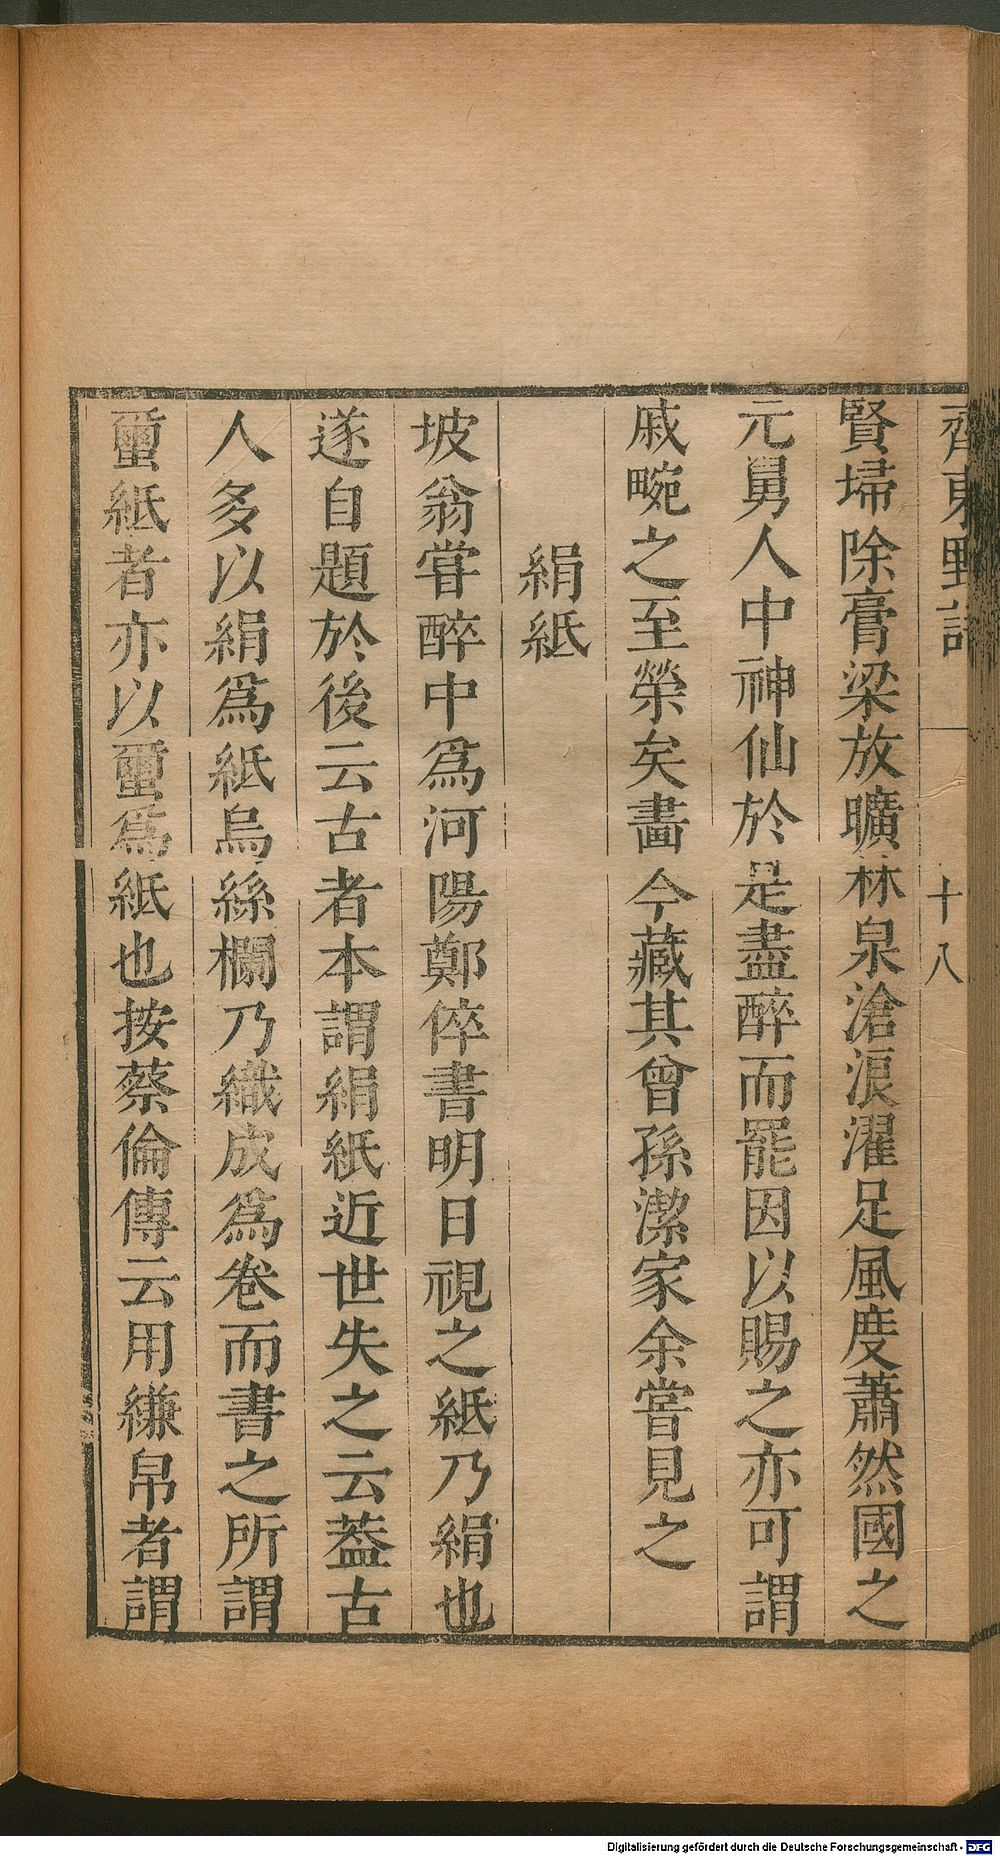 齊東野語
十八
賢埽除膏梁放曠林泉滄浪濯足風度蕭然國之
元舅人中神仙於是盡醉而罷因以賜之亦可謂
戚畹之至榮矣畵今藏其曾孫潔家余嘗見之
絹紙
坡翁嘗醉中爲河陽鄭倅書明日視之紙乃絹也
遂自題於後云古者本謂絹紙近世失之云葢古
人多以絹爲紙烏絲欄乃織成爲卷而書之所謂
蠒紙者亦以蠒爲紙也按蔡倫傳云用縑帛者謂
Digitalisierung gefördert durch die Deutsche Forschungsgemeinschaft - DFG